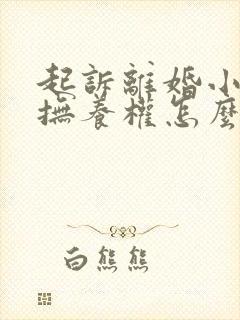 起訴離婚小
撫養權怎麼
白熊熊